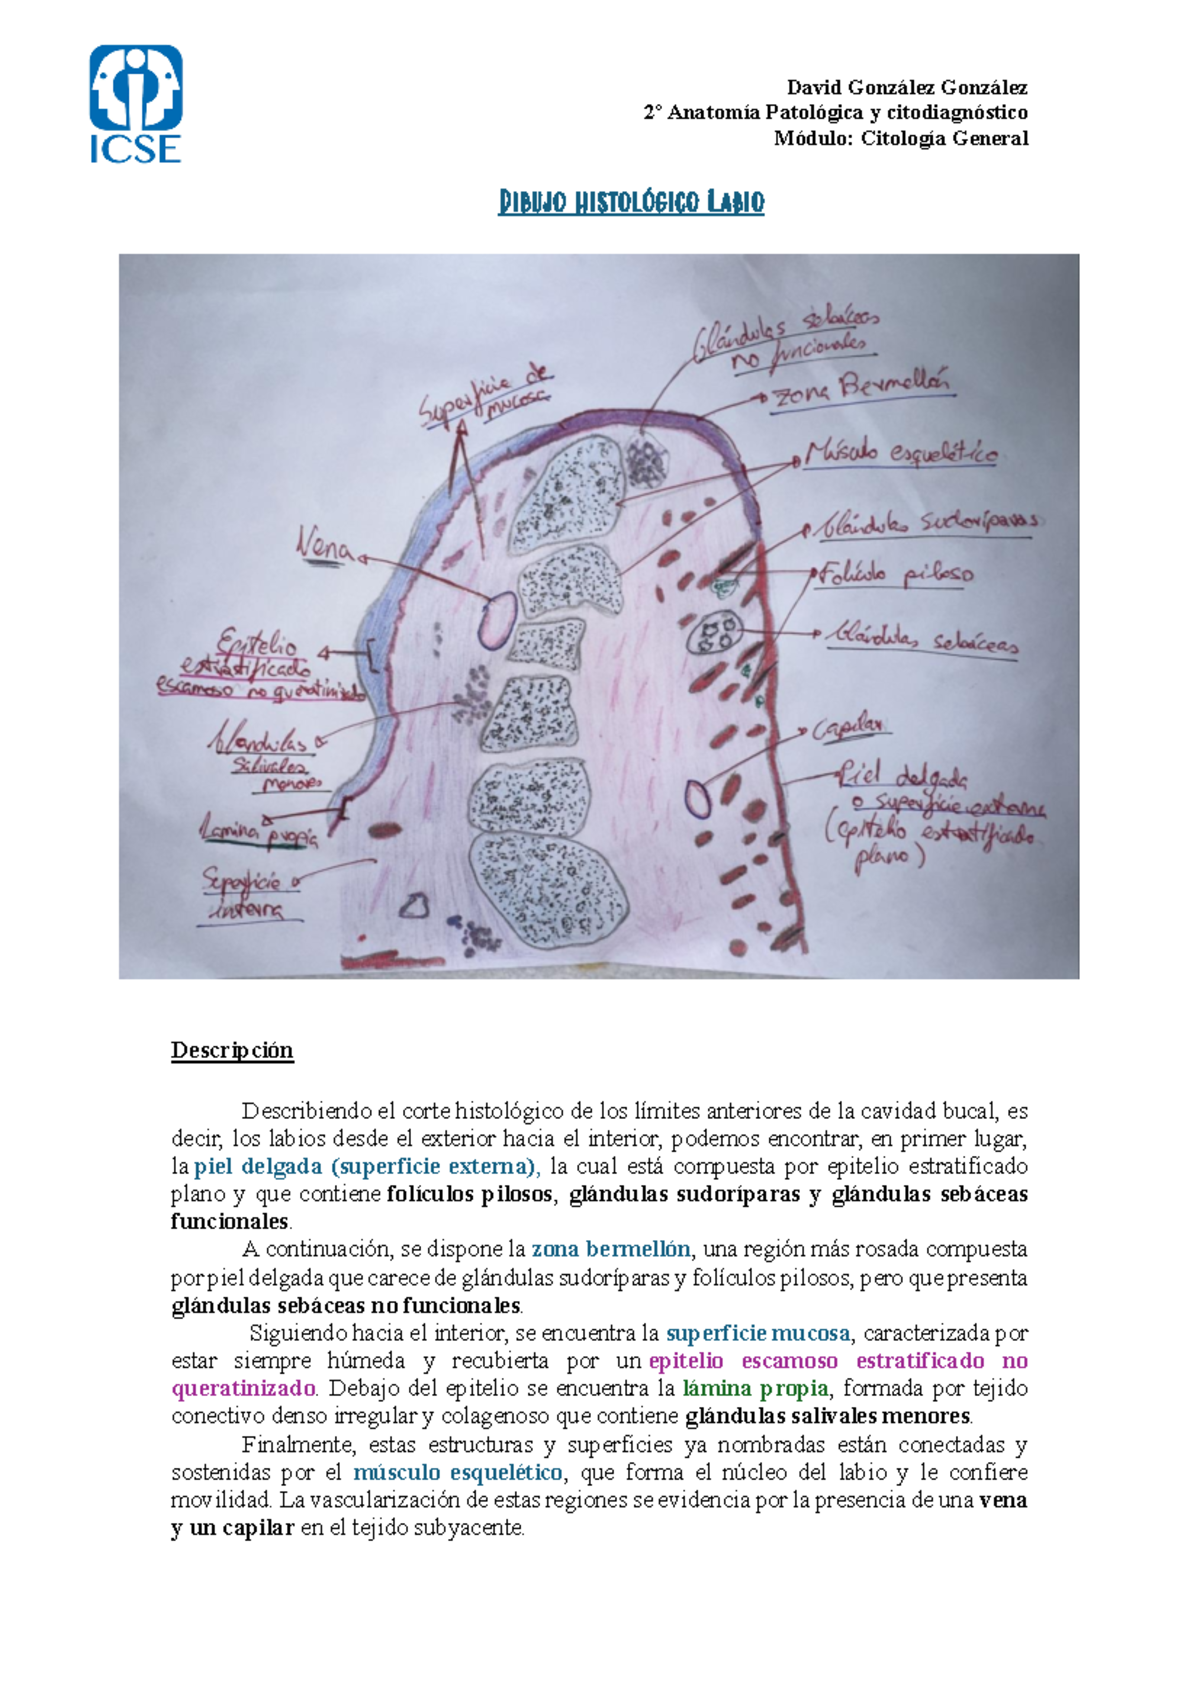 ICSE
David González González
2º Anatomía Patológica y citodiagnóstico
Módulo: Citología General
Dibujo Histológico Labio
Glándulas sebáceas
no funcionales
Superficie de
mucosa
Zona Bermellón
Músculo esquelético
Vena
Glándulas sudoríparas
Folículo piloso
Epitelio
estratificado
escamoso no queratinizado
Glándulas sebáceas
Glándulas
Salivales
menores
Capilar
Piel delgada
o superficie externa
(epitelio estratificado
plano)
Lamina propia
Superficie
interna
Descripción
Describiendo el corte histológico de los límites anteriores de la cavidad bucal, es
decir, los labios desde el exterior hacia el interior, podemos encontrar, en primer lugar,
la piel delgada (superficie externa), la cual está compuesta por epitelio estratificado
plano y que contiene folículos pilosos, glándulas sudoríparas y glándulas sebáceas
funcionales.
A continuación, se dispone la zona bermellón, una región más rosada compuesta
por piel delgada que carece de glándulas sudoríparas y folículos pilosos, pero que presenta
glándulas sebáceas no funcionales.
Siguiendo hacia el interior, se encuentra la superficie mucosa, caracterizada por
estar siempre húmeda y recubierta por un epitelio escamoso estratificado no
queratinizado. Debajo del epitelio se encuentra la lámina propia, formada por tejido
conectivo denso irregular y colagenoso que contiene glándulas salivales menores.
Finalmente, estas estructuras y superficies ya nombradas están conectadas y
sostenidas por el músculo esquelético, que forma el núcleo del labio y le confiere
movilidad. La vascularización de estas regiones se evidencia por la presencia de una vena
y un capilar en el tejido subyacente.